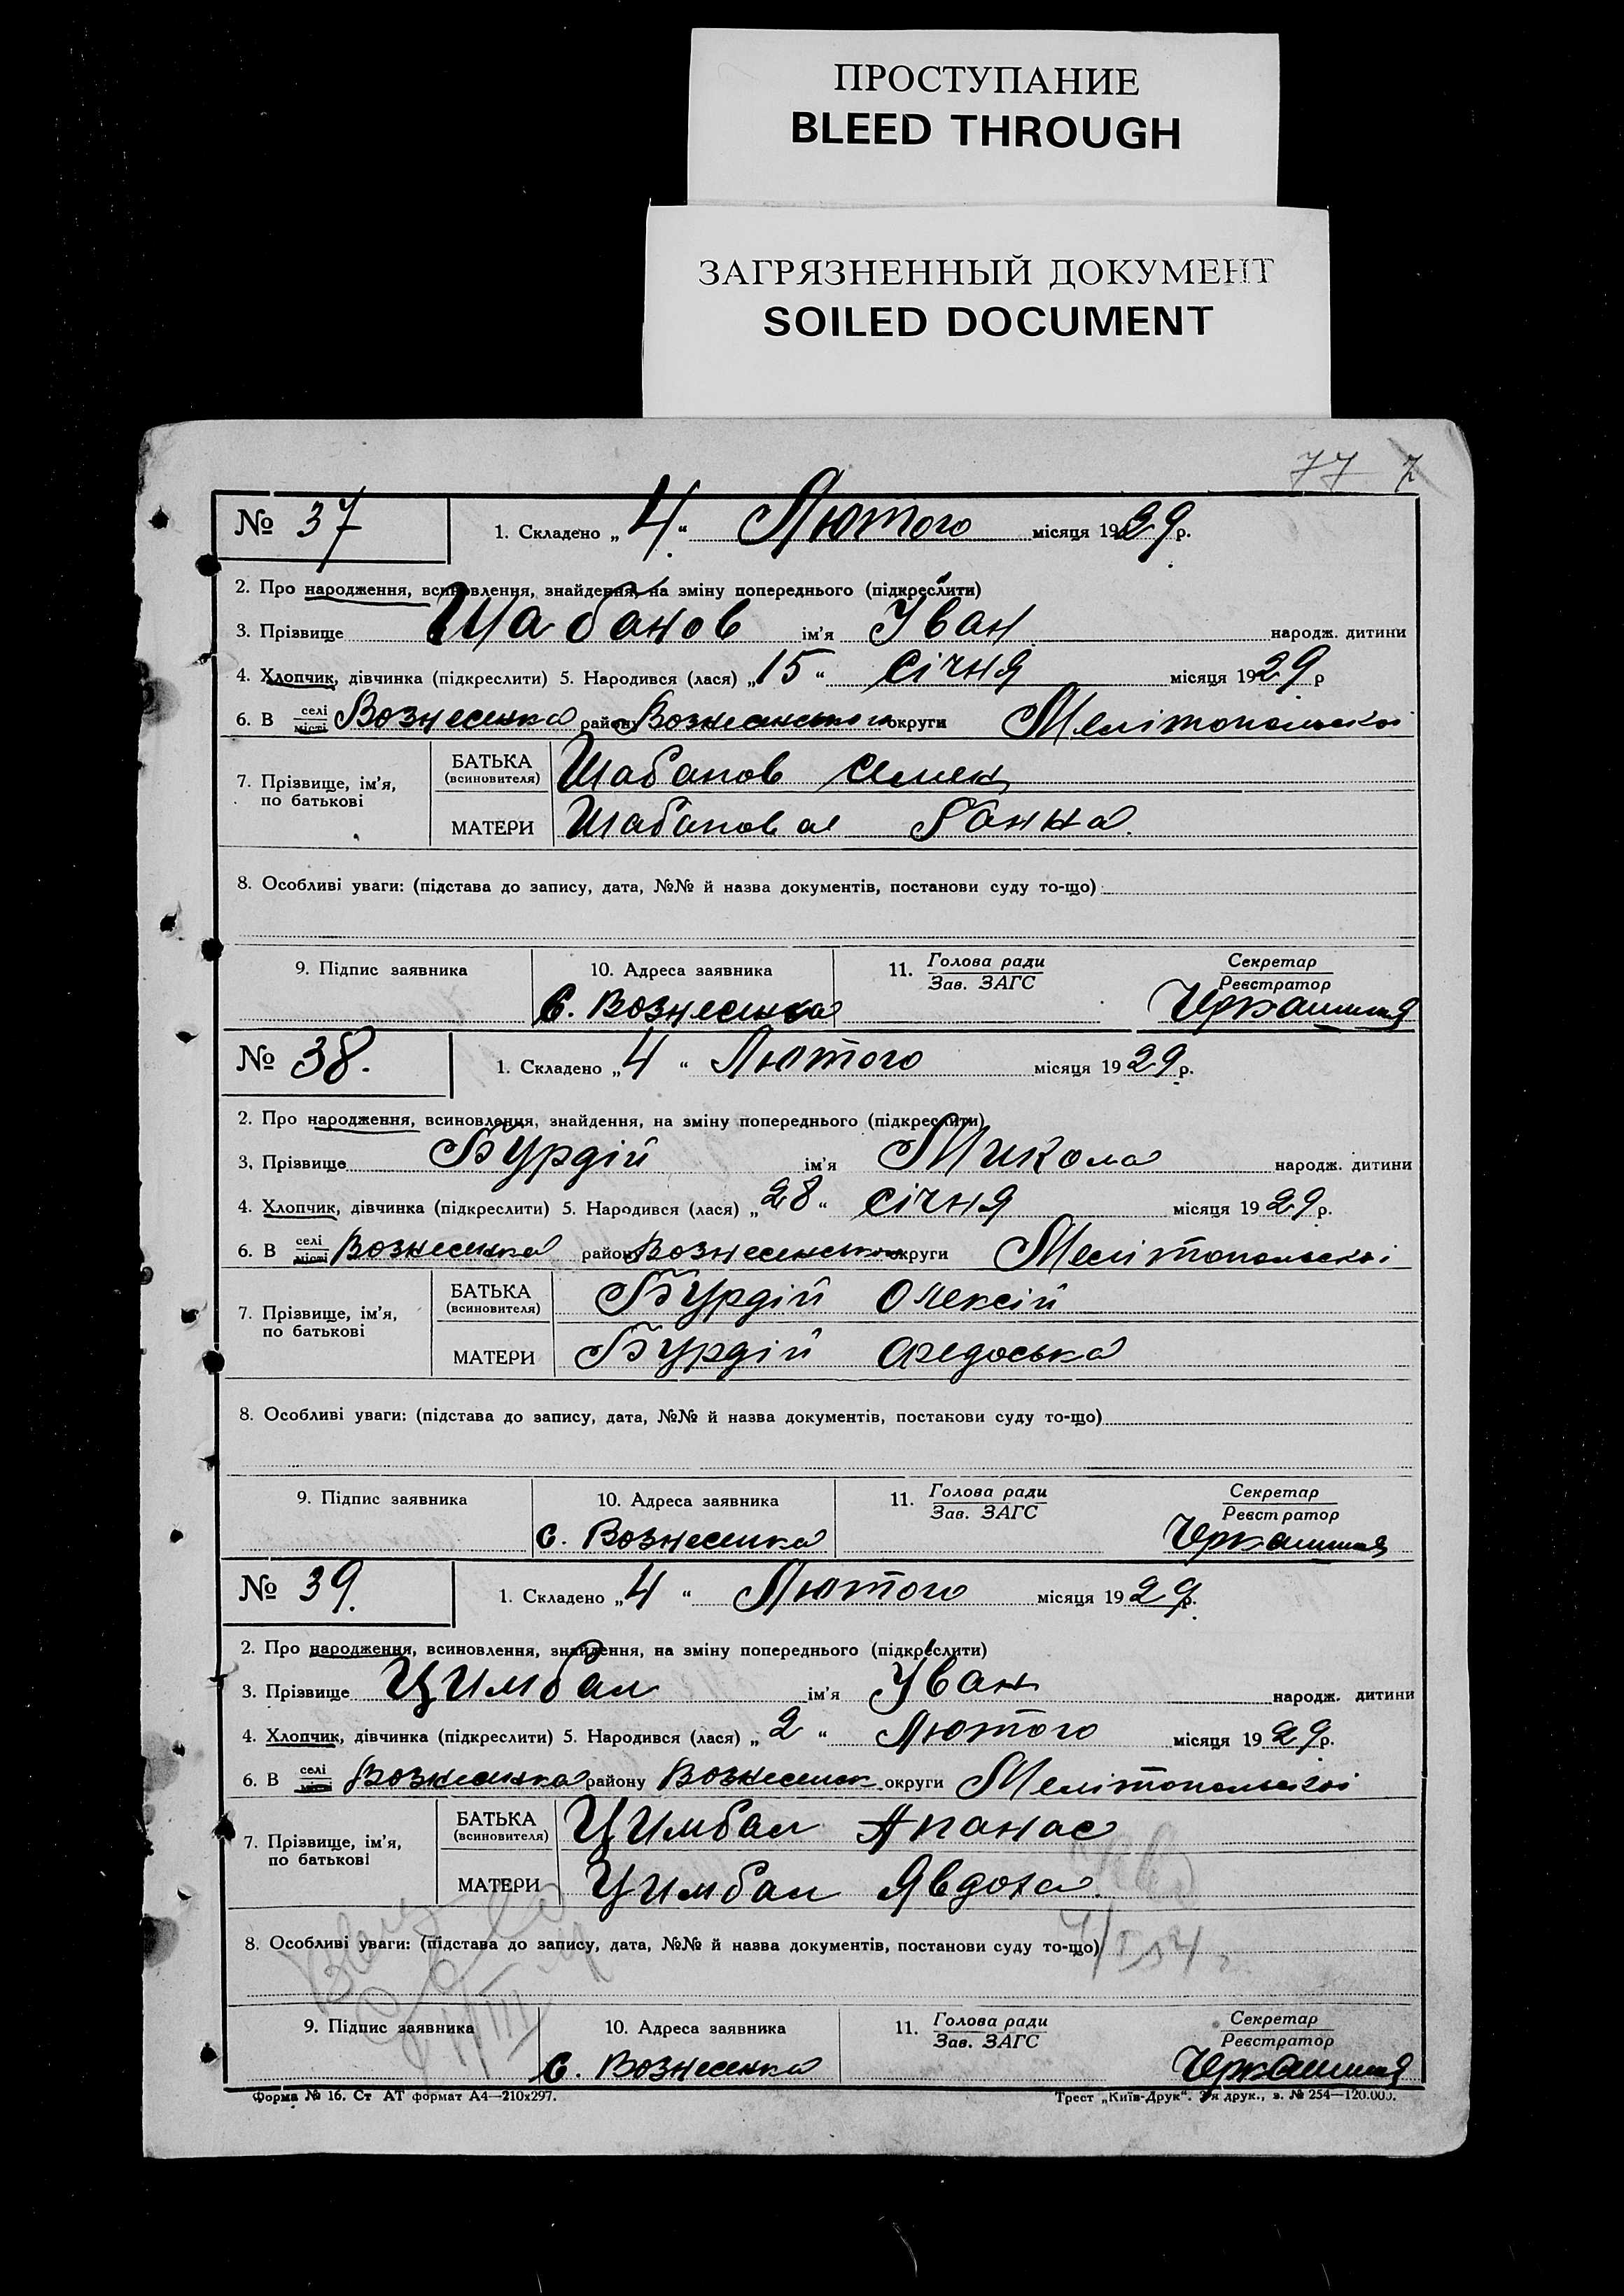 ПРОСТУПАНИЕ
BLEED THROUGH
ЗАГРЯЗНЕННЫЙ ДОКУМЕНТ
SOILED DOCUMENT
77 7
№ 37 1. Складено „4“ Лютого місяця 1929 р.
2. Про народження, всиновлення, знайдення, на зміну попереднього (підкреслити)
3. Прізвище Шабанов ім'я Іван народж. дитини
4. Хлопчик, дівчинка (підкреслити) 5. Народився (лася) „15“ Січня місяця 1929 р
6. В селі місті Вознесенка району Вознесенського округи Мелітопольскої
7. Прізвище, ім'я, по батькові
БАТЬКА (всиновителя) Шабанов Семен
МАТЕРИ Шабанова Ганна.
8. Особливі уваги: (підстава до запису, дата, №№ й назва документів, постанови суду то-що)
9. Підпис заявника 10. Адреса заявника 11. Голова ради Зав. ЗАГС Секретар Реєстратор
С. Вознесенка
№ 38. 1. Складено „4“ Лютого місяця 1929 р.
2. Про народження, всиновлення, знайдення, на зміну попереднього (підкреслити)
3. Прізвище Бурдій ім'я Микола народж. дитини
4. Хлопчик, дівчинка (підкреслити) 5. Народився (лася) „28“ Січня місяця 1929 р.
6. В селі місті Вознесенка району Вознесенського округи Мелітопольскої
7. Прізвище, ім'я, по батькові
БАТЬКА (всиновителя) Бурдій Олексій
МАТЕРИ Бурдій
8. Особливі уваги: (підстава до запису, дата, №№ й назва документів, постанови суду то-що)
9. Підпис заявника 10. Адреса заявника 11. Голова ради Зав. ЗАГС Секретар Реєстратор
С. Вознесенка
№ 39. 1. Складено „4“ Лютого місяця 1929 р.
2. Про народження, всиновлення, знайдення, на зміну попереднього (підкреслити)
3. Прізвище Цимбал ім'я Іван народж. дитини
4. Хлопчик, дівчинка (підкреслити) 5. Народився (лася) „2“ Лютого місяця 1929 р.
6. В селі місті Вознесенка району Вознесенск округи Мелітопольської
7. Прізвище, ім'я, по батькові
БАТЬКА (всиновителя) Цимбал Апанас
МАТЕРИ Цимбал Явдоха
8. Особливі уваги: (підстава до запису, дата, №№ й назва документів, постанови суду то-що)
9. Підпис заявника 10. Адреса заявника 11. Голова ради Зав. ЗАГС Секретар Реєстратор
С. Вознесенка
Форма № 16. Ст АТ формат А4—210х297. Трест „Київ-Друк“. 3-я друк., з. № 254—120.000.